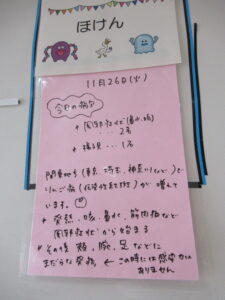 ほけん
11月26日(火)
今日の病欠
* 風邪症状(鼻水、咳)
… 2名
* 様子見 … 1名
関東地方(東京、埼玉、神奈川など)で
りんご病(伝染性紅斑)が増えて
います。
* 発熱、咳、鼻水、筋肉痛など
風邪症状から始まる
* その後 頬、腕、足などに
まだらな発疹 ← この時には感染力は
ありません